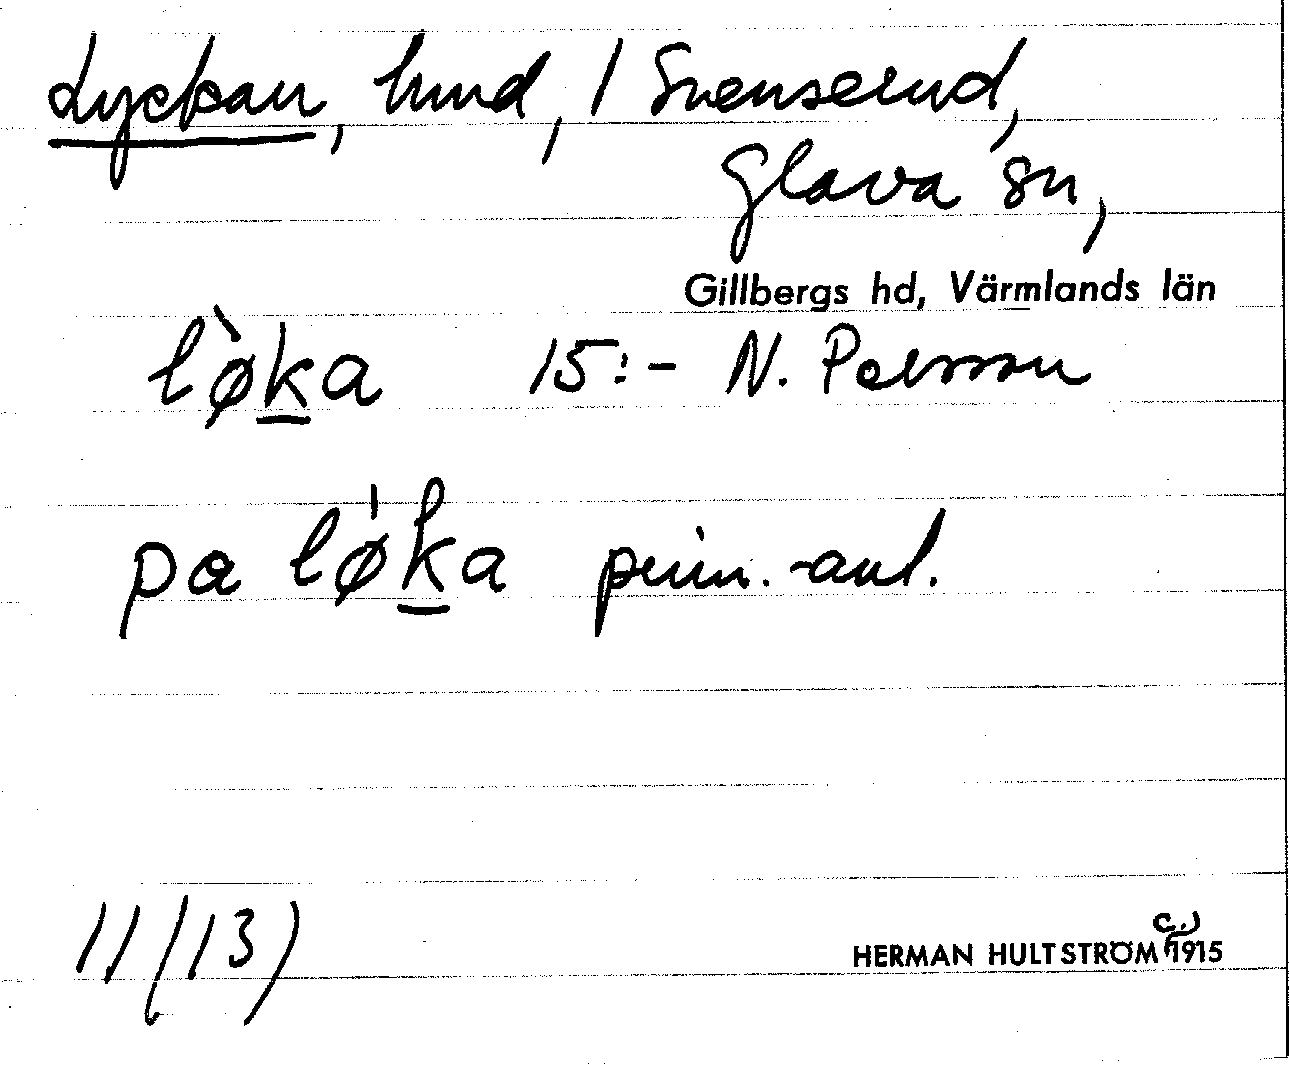 Lyckan, hmd, / Svenserud,
Glava sn,
Gillbergs hd, Värmlands län
lø̀ka 15:- N. Persson
pa lø̍ka prim.-anl.
11 (13)
HERMAN HULTSTRÖM c.) 1915